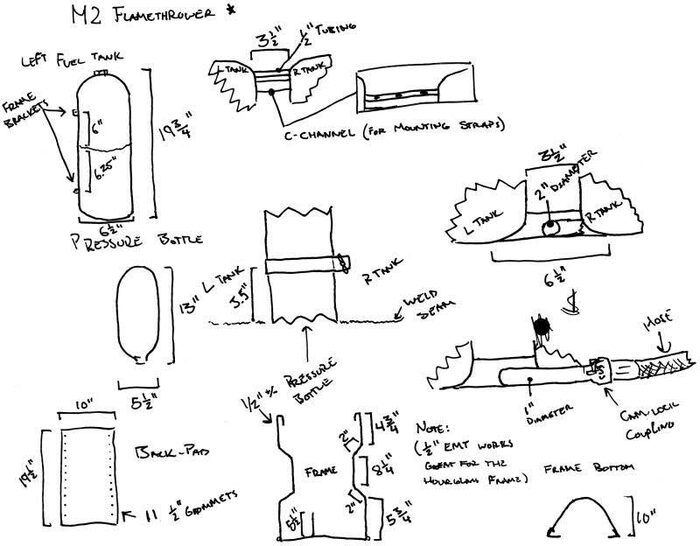 M2 FLAMETHROWER *
LEFT FUEL TANK
FRAME
BRACKETS
6"
6.25"
19 3/4"
6 1/2"
3 1/2"
1/2" TUBING
L TANK
R TANK
C-CHANNEL (FOR MOUNTING STRAPS)
3 1/2"
2" DIAMETER
L TANK
R TANK
6 1/2"
PRESSURE BOTTLE
13"
5 1/2"
L TANK
5.5"
R TANK
WELD
SEAM
PRESSURE
BOTTLE
HOSE
1"
DIAMETER
CAM-LOCK
COUPLING
10"
19 1/2"
BACK-PAD
11 1/2" GROMMETS
1/2" +/-
FRAME
2"
4 3/4"
8 1/4"
2"
5 3/4"
NOTE:
(1/2" EMT WORKS
GREAT FOR THE
HOURGLASS FRAME)
FRAME BOTTOM
10"